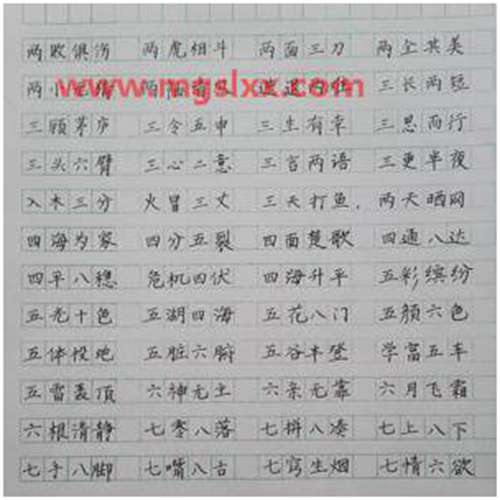 两败俱伤 两虎相斗 两面三刀 两全其美
两小 三长两短
www.mgslxx.com
三顾茅庐 三令五申 三生有幸 三思而行
三头六臂 三心二意 三言两语 三更半夜
入木三分 火冒三丈 三天打鱼, 两天晒网
四海为家 四分五裂 四面楚歌 四通八达
四平八稳 危机四伏 四海升平 五彩缤纷
五光十色 五湖四海 五花八门 五颜六色
五体投地 五脏六腑 五谷丰登 学富五车
五雷轰顶 六神无主 六亲无靠 六月飞霜
六根清静 七零八落 七拼八凑 七上八下
七手八脚 七嘴八舌 七窍生烟 七情六欲